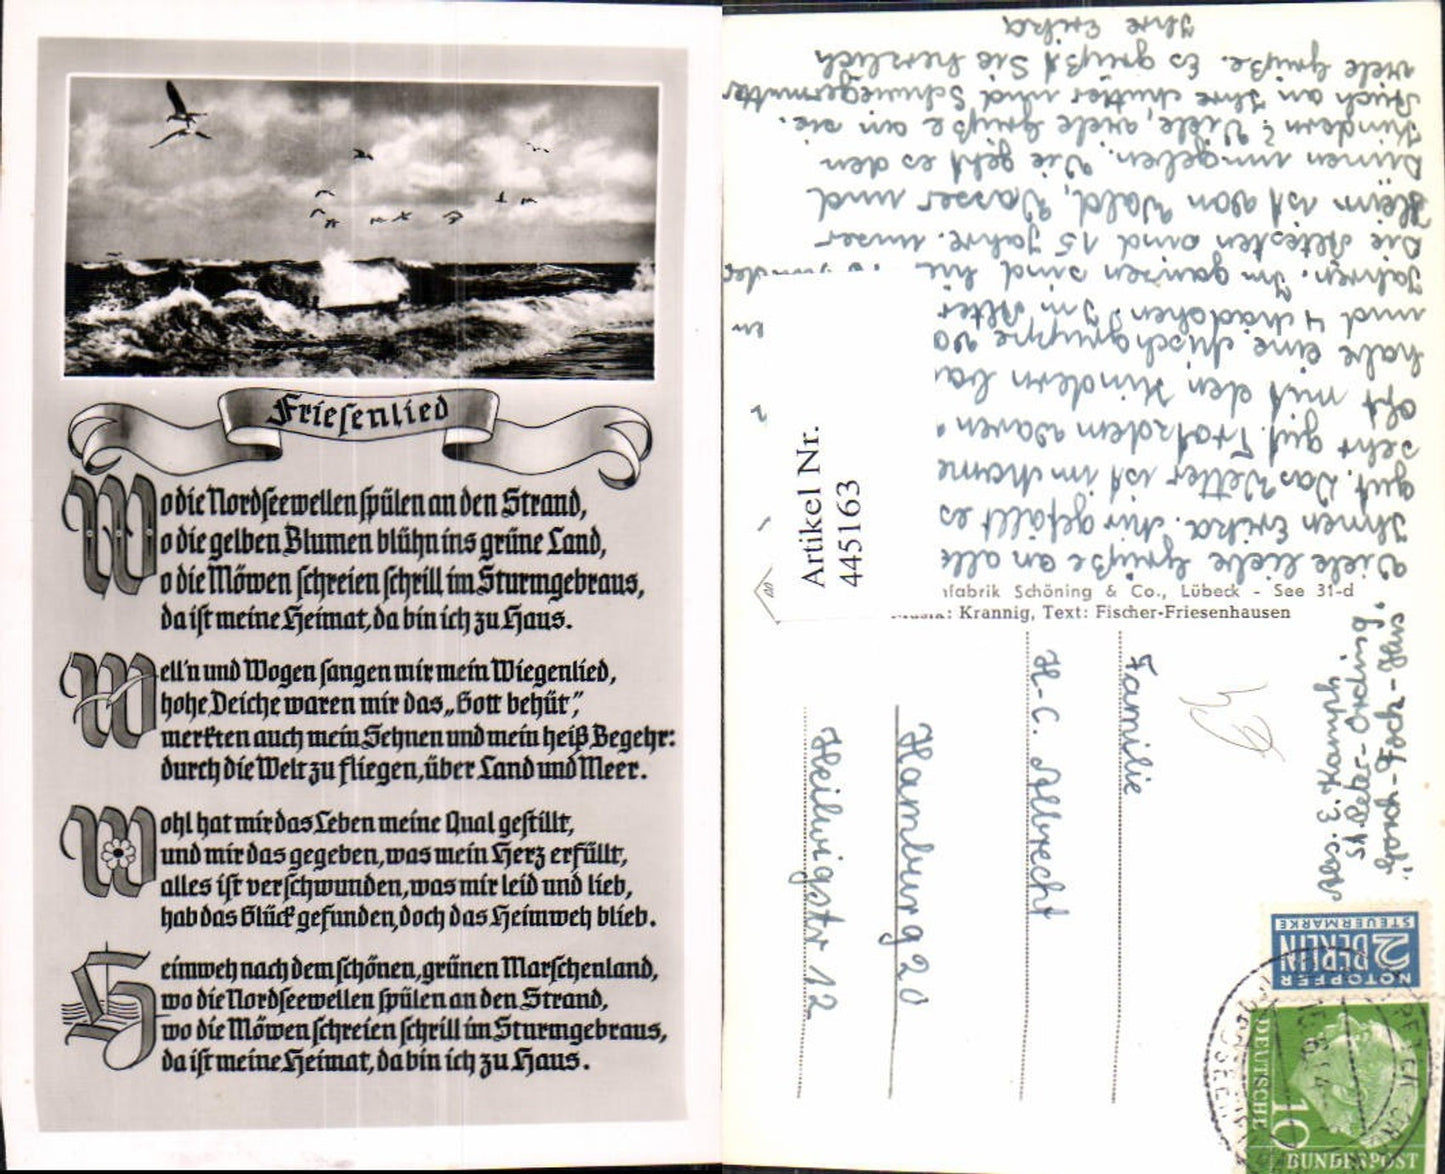 Friesenlied
Wo die Nordseewellen spülen an den Strand,
Wo die gelben Blumen blühn ins grüne Land,
Wo die Möwen schreien schrill im Sturmgebraus,
da ist meine Heimat, da bin ich zu Haus.
Well'n und Wogen sangen mir mein Wiegenlied,
hohe Deiche waren mir das „Gott behüt",
merkten auch mein Sehnen und mein heiß Begehr:
durch die Welt zu fliegen, über Land und Meer.
Wohl hat mir das Leben meine Qual gestillt,
und mir das gegeben, was mein Herz erfüllt,
alles ist verschwunden, was mir leid und lieb,
hab das Glück gefunden, doch das Heimweh blieb.
Heimweh nach dem schönen, grünen Marschenland,
wo die Nordseewellen spülen an den Strand,
wo die Möwen schreien schrill im Sturmgebraus,
da ist meine Heimat, da bin ich zu Haus.
Viele liebe Grüße an alle
Ihnen Erika. Mir gefällt es
gut. Das Wetter ist im
sehr gut. Trotzdem waren
oft mit den Kindern ba
habe eine Mischgruppe
und 4 Mädchen im Alter
Jahren. Im ganzen sind hi
Die Ältesten sind 15 Jahre. Unser
Heim ist von Wald, Wasser und
Dünen umgeben. Wie geht es den
Kindern? Viele, viele Grüße an sie.
Auch an Ihre Mutter und Schwiegermutter
viele Grüße. Es grüßt Sie herzlich
Ihre Erika
Artikel Nr.
445163
nfabrik Schöning & Co., Lübeck - See 31-d
Musik: Krannig, Text: Fischer-Friesenhausen
Abs. E. Kamph
St. Peter-Ording
Gorch-Fock-Haus
Familie
H-C. Albrecht
Hamburg 20
Heilwigstr 12
NOTOPFER
2 BERLIN
STEUERMARKE
DEUTSCHE
10
BUNDESPOST